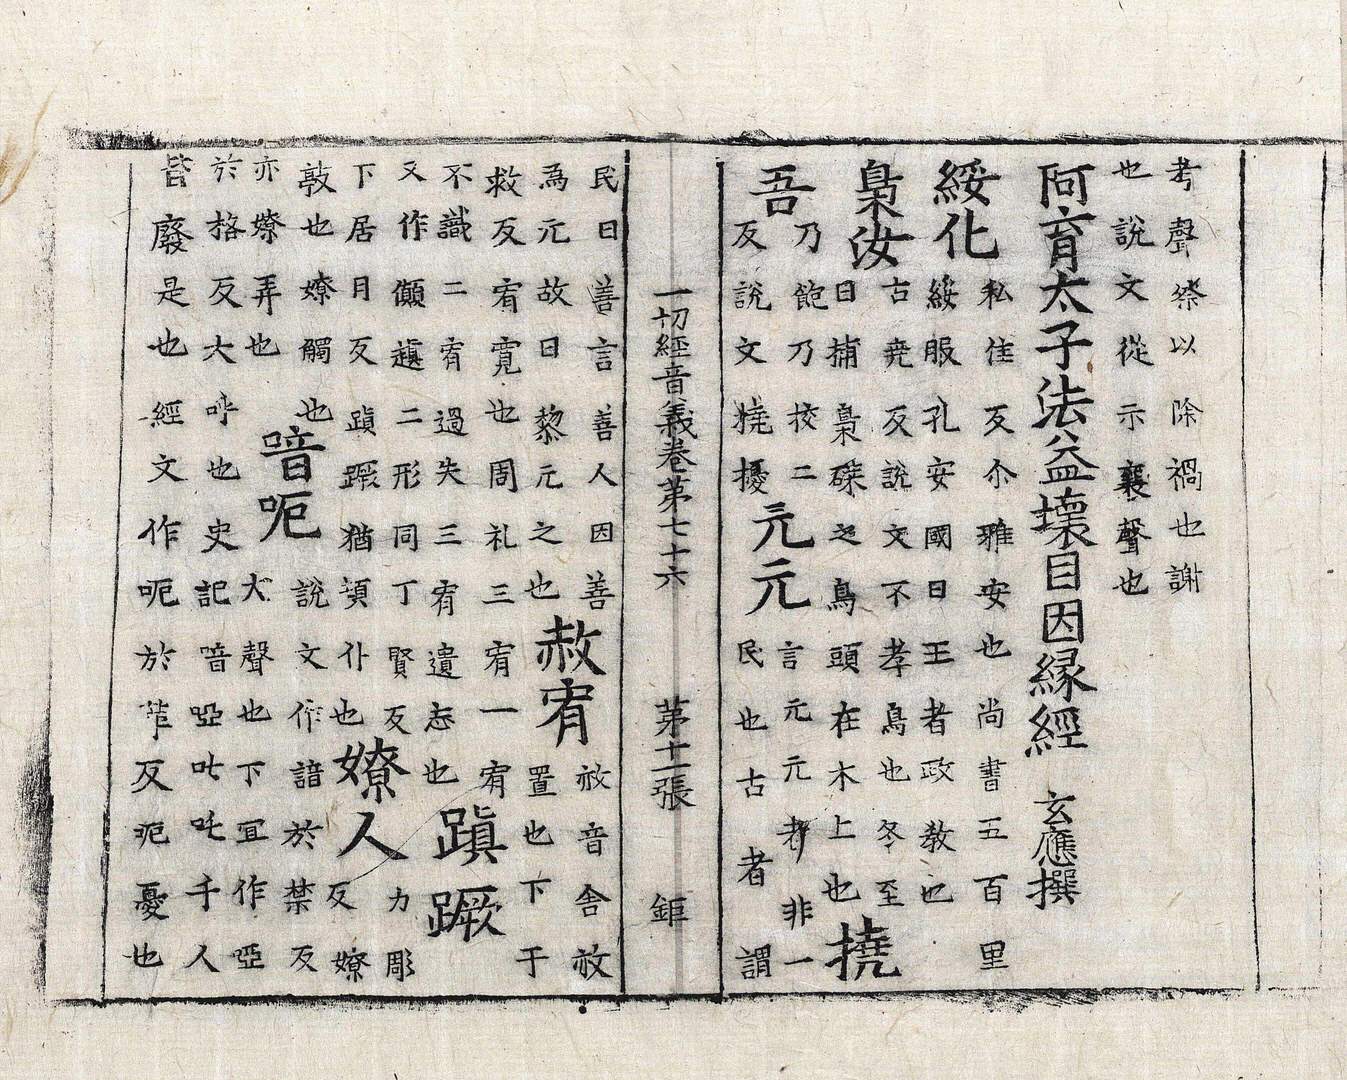 考聲禜以除禍也謝
也說文從示襄聲也
阿育太子法益壞目因縁經 玄應撰
綏化
私佳反尒雅安也尚書五百里
綏服孔安國曰王者政教也
梟汝
古尭反說文不孝鳥也冬至
日捕梟磔之鳥頭在木上也
撓
吾
乃飽乃挍二
反說文撓擾
元元
言元元者非一
民也古者謂
一切經音義卷第七十六 第十一張 鉅
民曰善言善人因善
為元故曰黎元之也
赦宥
赦音舍赦
置也下于
救反宥寛也周礼三宥一宥
不識二宥過失三宥遺忘也
蹎蹶
又作傎二形同丁賢反
下居月反蹎蹶猶頓仆也
嫽人
力彫
反嫽
也嫽觸也
亦嫽弄也
喑呃
說文作諳於禁反
犬聲也下冝作啞
於格反大呼也史記喑啞叱吒千人
皆廢是也經文作呃於革反呃憂也